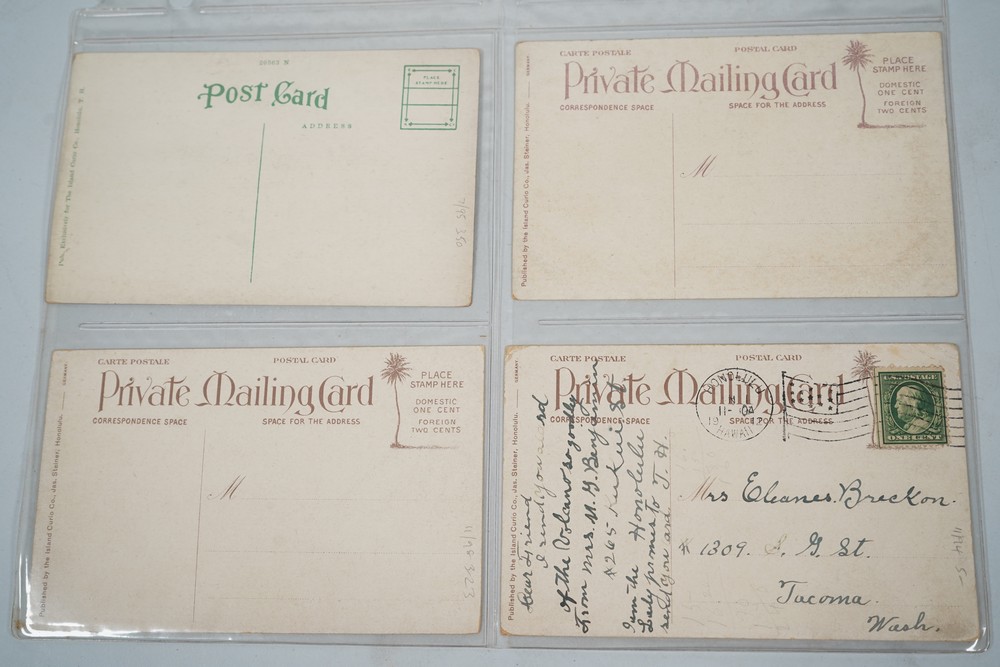 20563 N
Post Card
PLACE
STAMP HERE
ADDRESS
Pub. Exclusively for The Island Curio Co., Honolulu, T. H.
7/95 350
CARTE POSTALE POSTAL CARD
Private Mailing Card
CORRESPONDENCE SPACE SPACE FOR THE ADDRESS
PLACE
STAMP HERE
DOMESTIC
ONE CENT
FOREIGN
TWO CENTS
M
Published by the Island Curio Co., Jas. Steiner, Honolulu. GERMANY
CARTE POSTALE POSTAL CARD
Private Mailing Card
CORRESPONDENCE SPACE SPACE FOR THE ADDRESS
PLACE
STAMP HERE
DOMESTIC
ONE CENT
FOREIGN
TWO CENTS
M
Published by the Island Curio Co., Jas. Steiner, Honolulu. GERMANY
CARTE POSTALE POSTAL CARD
Private Mailing Card
CORRESPONDENCE SPACE SPACE FOR THE ADDRESS
HONOLULU
HAWAII
U.S. POSTAGE
ONE CENT
Published by the Island Curio Co., Jas. Steiner, Honolulu. GERMANY
Dear Friend
I send you a
of the Volcano so goodby
From Mrs. M. G. Benjamin
#265 Kukui St
I am the Honolulu
Lady promes to T. H.
send you a
Mrs Eleanes. Breckon.
# 1309. S. G. St.
Tacoma.
Wash.